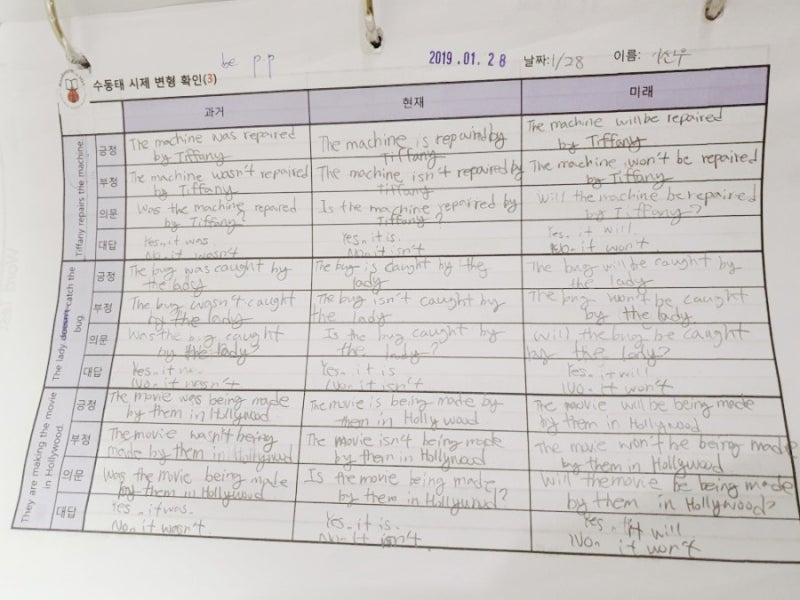 be p.p
2019.01.28 날짜: 1/28 이름:
수동태 시제 변형 확인(3)
과거 현재 미래
Tiffany repairs the machine.
긍정
The machine was repaired
by Tiffany
The machine is repaired by
Tiffany
The machine will be repaired
by Tiffany
부정
The machine wasn't repaired
by Tiffany
The machine isn't repaired by
Tiffany
The machine won't be repaired
by Tiffany
의문
Was the machine repaired
by Tiffany?
Is the machine repaired by
Tiffany?
Will the machine be repaired
by Tiffany?
대답
Yes. it was.
No. it wasn't
Yes. it is.
No it isn't
Yes. it will.
No. it won't
The lady doesn't catch the
bug.
긍정
The bug was caught by
the lady
The bug is caught by the
lady
The bug will be caught by
the lady
부정
The bug wasn't caught
by the lady
The bug isn't caught by
the lady
The bug won't be caught
by the lady
의문
Was the bug caught
by the lady?
Is the bug caught by
the lady?
Will the bug be caught
by the lady?
대답
Yes. it
No. it wasn't
Yes. it is
No. it isn't
Yes. it will
No. it won't
They are making the movie
in Hollywood.
긍정
The movie was being made
by them in Hollywood
The movie is being made by
them in Hollywood
The movie will be being made
by them in Hollywood
부정
The movie wasn't being
made by them in Hollywood
The movie isn't being made
by them in Hollywood
The movie won't be being made
by them in Hollywood
의문
Was the movie being made
by them in Hollywood
Is the movie being made
by them in Hollywood?
Will the movie be being made
by them in Hollywood?
대답
Yes. it was.
No. it wasn't.
Yes. it is.
No. it isn't
Yes. it will
No. it won't